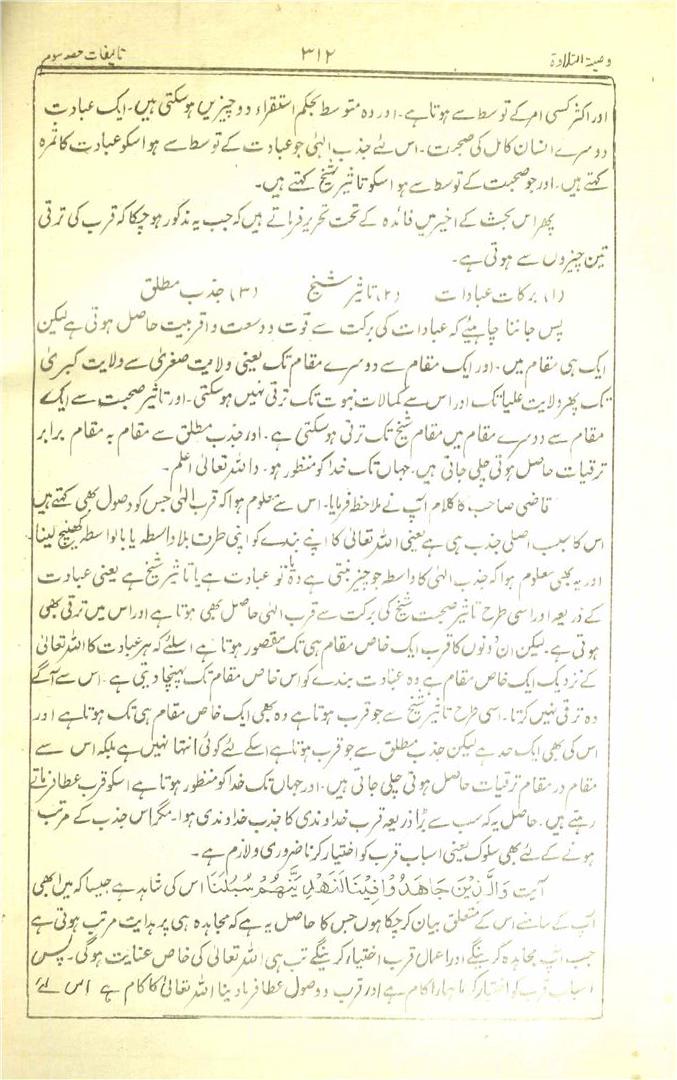 وصیۃ التلاوۃ ۳۱۲ تالیفات حصہ سوم
اور اکثر کسی امر کے توسط سے ہوتا ہے۔ اور وہ متوسط بحکم استقراء دو چیزیں ہوسکتی ہیں۔ ایک عبادت
دوسرے انسان کامل کی صحبت۔ اس لئے جذب الٰہی جو عبادت کے توسط سے ہو اسکو عبادت کا ثمرہ
کہتے ہیں۔ اور جو صحبت کے توسط سے ہو اسکو تاثیر شیخ کہتے ہیں۔
پھر اس بحث کے اخیر میں فائدہ کے تحت تحریر فرماتے ہیں کہ جب یہ مذکور ہوچکا کہ قرب کی ترقی
تین چیزوں سے ہوتی ہے۔
(۱) برکات عبادات (۲) تاثیر شیخ (۳) جذب مطلق
پس جاننا چاہیئے کہ عبادات کی برکت سے قوت و وسعت و اقربیت حاصل ہوتی ہے لیکن
ایک ہی مقام میں۔ اور ایک مقام سے دوسرے مقام تک یعنی ولایت صغریٰ سے ولایت کبریٰ
تک پھر ولایت علیا تک اور اس سے کمالات نبوت تک ترقی نہیں ہوسکتی۔ اور تاثیر صحبت سے ایک
مقام سے دوسرے مقام میں مقام شیخ تک ترقی ہوسکتی ہے۔ اور جذب مطلق سے مقام بہ مقام برابر
ترقیات حاصل ہوتی چلی جاتی ہیں۔ جہاں تک خدا کو منظور ہو۔ واللہ تعالیٰ اعلم۔
قاضی صاحب کا کلام آپ نے ملاحظہ فرمایا۔ اس سے معلوم ہوا کہ قرب الٰہی جس کو وصول بھی کہتے ہیں
اس کا سبب اصلی جذب ہی ہے یعنی اللہ تعالیٰ کا اپنے بندے کو اپنی طرف بلاواسطہ یا بالواسطہ کھینچ لینا
اور یہ بھی معلوم ہوا کہ جذب الٰہی کا واسطہ جو چیز بنتی ہے وہ یا تو عبادت ہے یا تاثیر شیخ ہے یعنی عبادت
کے ذریعہ اور اسی طرح تاثیر صحبت شیخ کی برکت سے قرب الٰہی حاصل بھی ہوتا ہے اور اس میں ترقی بھی
ہوتی ہے۔ لیکن ان دونوں کا قرب ایک خاص مقام ہی تک مقصور ہوتا ہے اسلئے کہ ہر عبادت کا اللہ تعالیٰ
کے نزدیک ایک خاص مقام ہے وہ عبادت بندے کو اس خاص مقام تک پہنچا دیتی ہے۔ اس سے آگے
وہ ترقی نہیں کرتا۔ اسی طرح تاثیر شیخ سے جو قرب ہوتا ہے وہ بھی ایک خاص مقام ہی تک ہوتا ہے اور
اس کی بھی ایک حد ہے لیکن جذب مطلق سے جو قرب ہوتا ہے اسکے لئے کوئی انتہا نہیں ہے بلکہ اس سے
مقام در مقام ترقیات حاصل ہوتی چلی جاتی ہیں۔ اور جہاں تک خدا کو منظور ہوتا ہے اسکو قرب عطا فرماتے
رہتے ہیں۔ حاصل یہ کہ سب سے بڑا ذریعہ قرب خداوندی کا جذب خداوندی ہوا۔ مگر اس جذب کے مرتب
ہونے کے لئے بھی سلوک یعنی اسباب قرب کو اختیار کرنا ضروری و لازم ہے۔
آیت وَالَّذِیْنَ جَاھَدُوْا فِیْنَا لَنَھْدِیَنَّھُمْ سُبُلَنَا اس کی شاہد ہے جیسا کہ میں ابھی
آپ کے سامنے اس کے متعلق بیان کرچکا ہوں جس کا حاصل یہ ہے کہ مجاہدہ ہی پر ہدایت مرتب ہوتی ہے
جب آپ مجاہدہ کرینگے اور اعمال قرب اختیار کرینگے تب ہی اللہ تعالیٰ کی خاص عنایت ہوگی۔ پس
اسباب قرب کو اختیار کرنا ہمارا کام ہے اور قرب و وصول عطا فرمادینا اللہ تعالیٰ کا کام ہے اس لئے